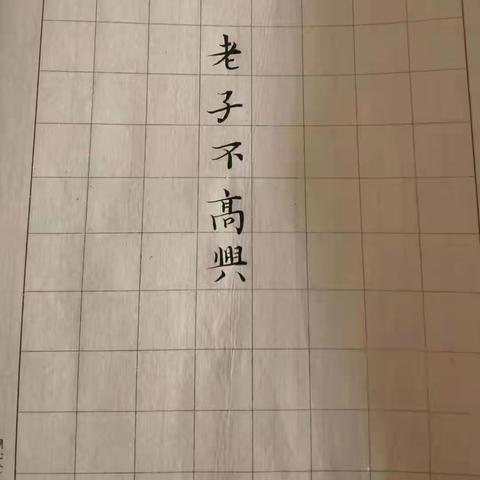 老子不高興